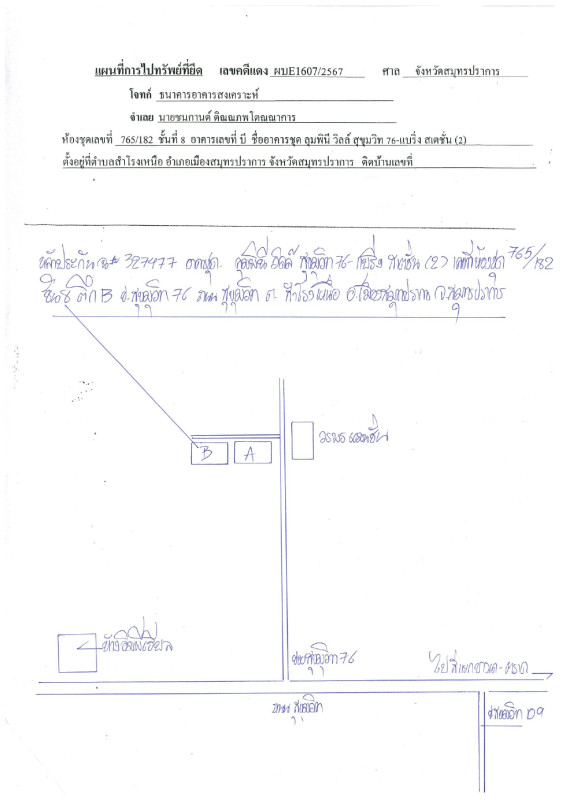 แผนที่การไปทรัพย์ที่ยึด เลขคดีแดง ผบE1607/2567 ศาล จังหวัดสมุทรปราการ
โจทก์ ธนาคารอาคารสงเคราะห์
จำเลย นายชนกานต์ ติณณภพโตณณาการ
ห้องชุดเลขที่ 765/182 ชั้นที่ 8 อาคารเลขที่ บี ชื่ออาคารชุด ลุมพินี วิลล์ สุขุมวิท 76-แบริ่ง สเตชั่น (2)
ตั้งอยู่ที่ตำบลสำโรงเหนือ อำเภอเมืองสมุทรปราการ จังหวัดสมุทรปราการ ติดบ้านเลขที่
หลักประกัน 327477 อาคารชุด ลุมพินี วิลล์ สุขุมวิท 76-แบริ่ง สเตชั่น (2) เลขที่ห้องชุด 765/182
ชั้น 8 ตึก B ซ.สุขุมวิท 76 ถนน สุขุมวิท ต. สำโรงเหนือ อ.เมืองสมุทรปราการ จ.สมุทรปราการ
B A
ห้างอิมพีเรียล
ซอยสุขุมวิท 76
ถนน สุขุมวิท